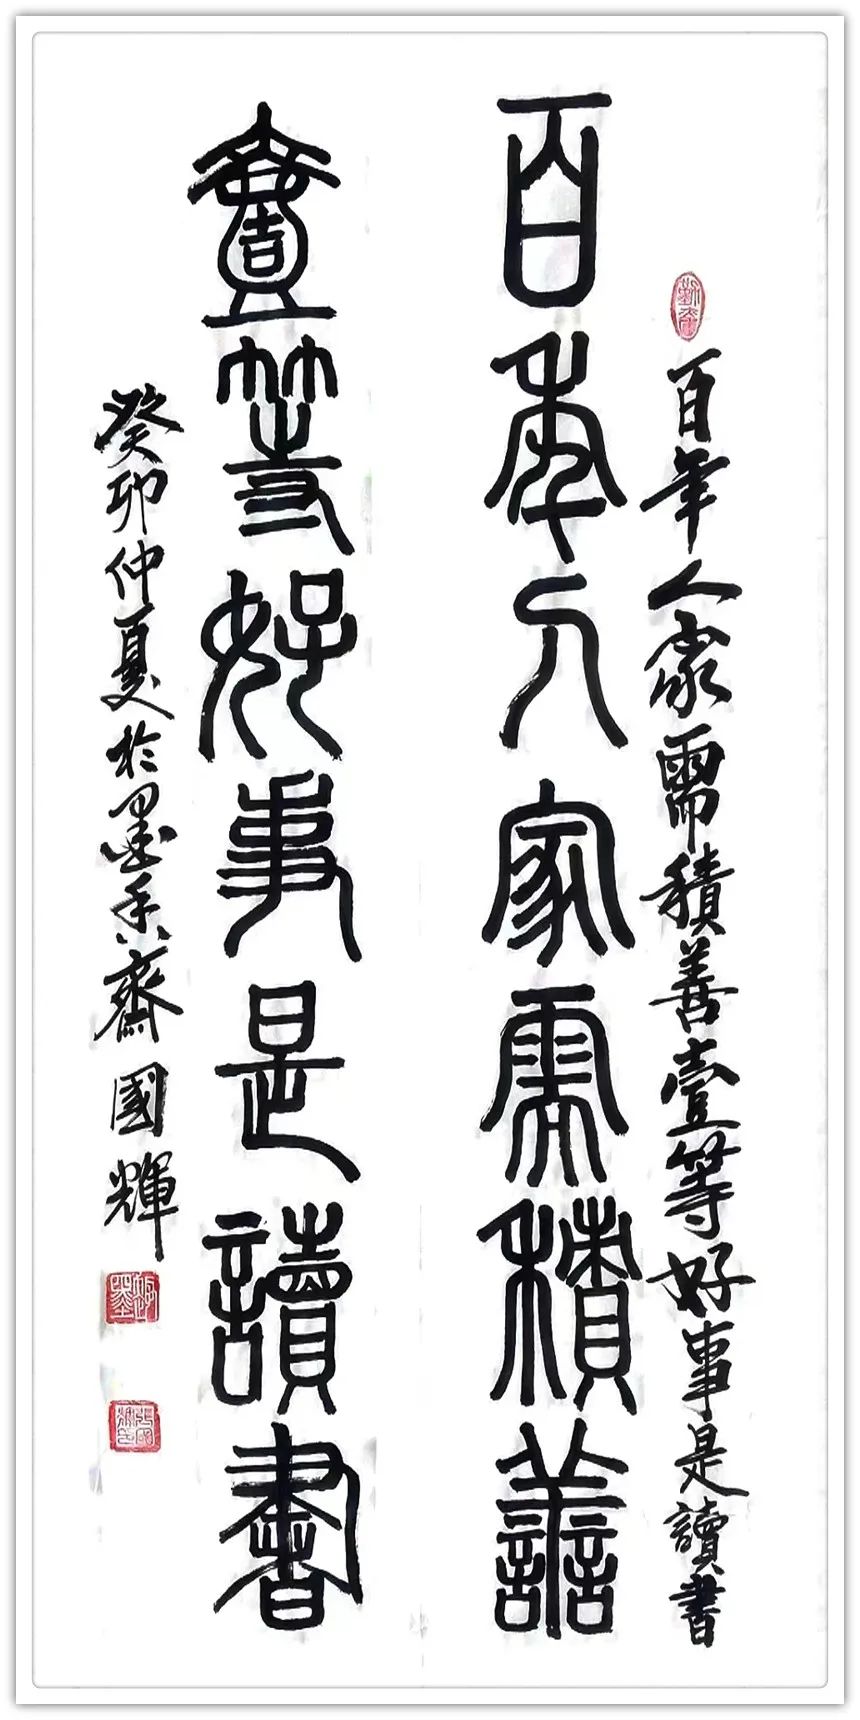 百年人家需積善壹等好事是讀書
百年人家需積善
壹等好事是讀書
癸卯仲夏於墨香齋國輝